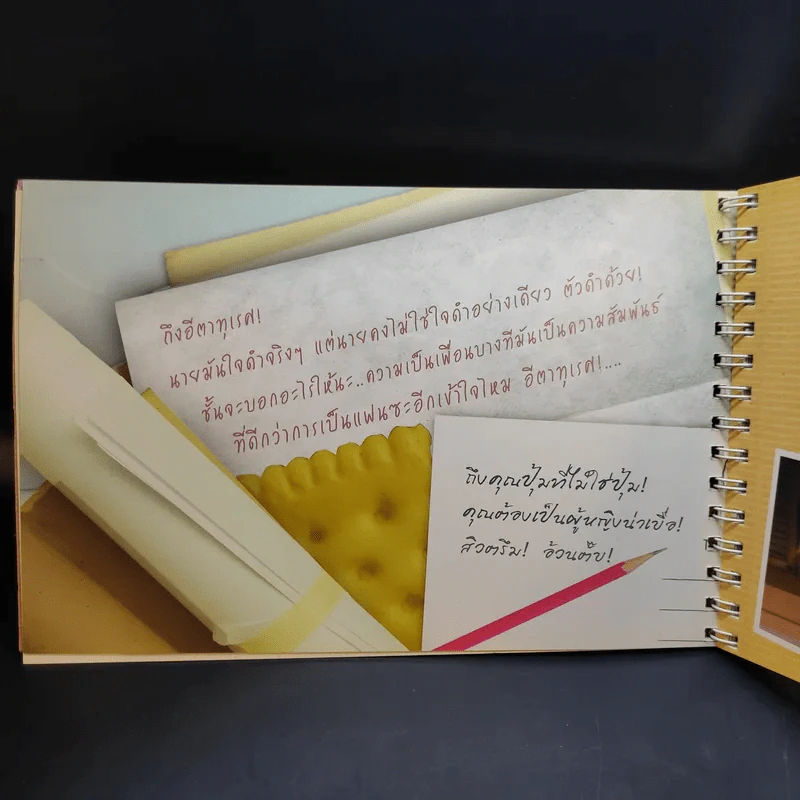 ถึงอีตาทุเรศ!
นายมันใจดำจริงๆ แต่นายคงไม่ใช่ใจดำอย่างเดียว ตัวดำด้วย!
ชั้นจะบอกอะไรให้นะ..ความเป็นเพื่อนบางทีมันเป็นความสัมพันธ์
ที่ดีกว่าการเป็นแฟนซะอีกเข้าใจไหม อีตาทุเรศ!....
ถึงคุณปุ้มที่ไม่ใช่ปุ้ม!
คุณต้องเป็นผู้หญิงน่าเบื่อ!
สิวตรึม! อ้วนตึ้บ!